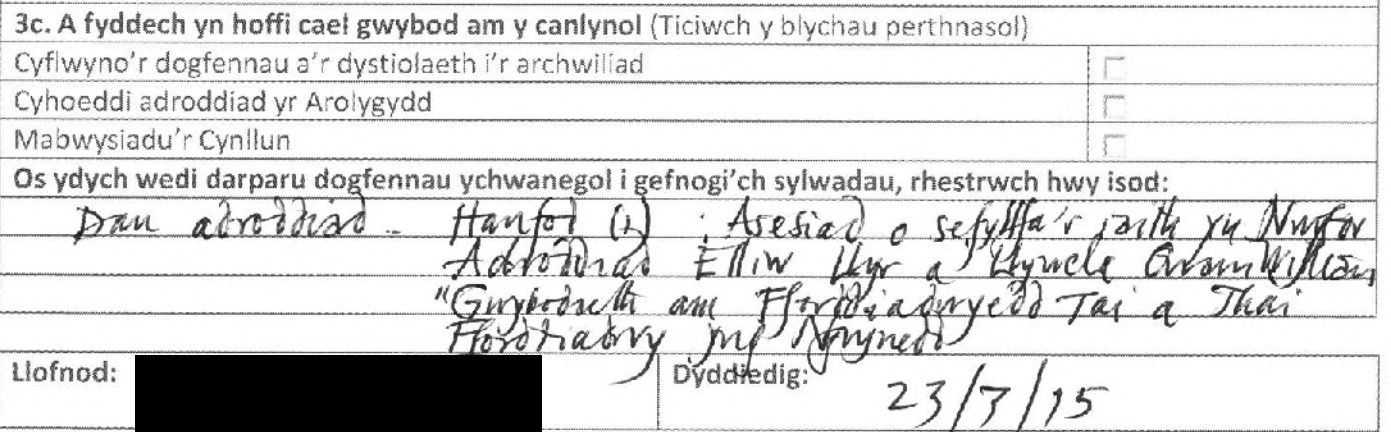 3c. A fyddech yn hoffi cael gwybod am y canlynol (Ticiwch y blychau perthnasol)
Cyflwyno'r dogfennau a'r dystiolaeth i'r archwiliad
Cyhoeddi adroddiad yr Arolygydd
Mabwysiadu'r Cynllun
Os ydych wedi darparu dogfennau ychwanegol i gefnogi'ch sylwadau, rhestrwch hwy isod:
Dau adroddiad - Hanfod (1) : Asesiad o sefyllfa'r iaith yn
Adroddiad Elliw Llyr a
"Gwybodaeth am Fforddiadwyedd Tai a Thai
Fforddiadwy yng Ngwynedd
Llofnod:
Dyddiedig: 23/3/15